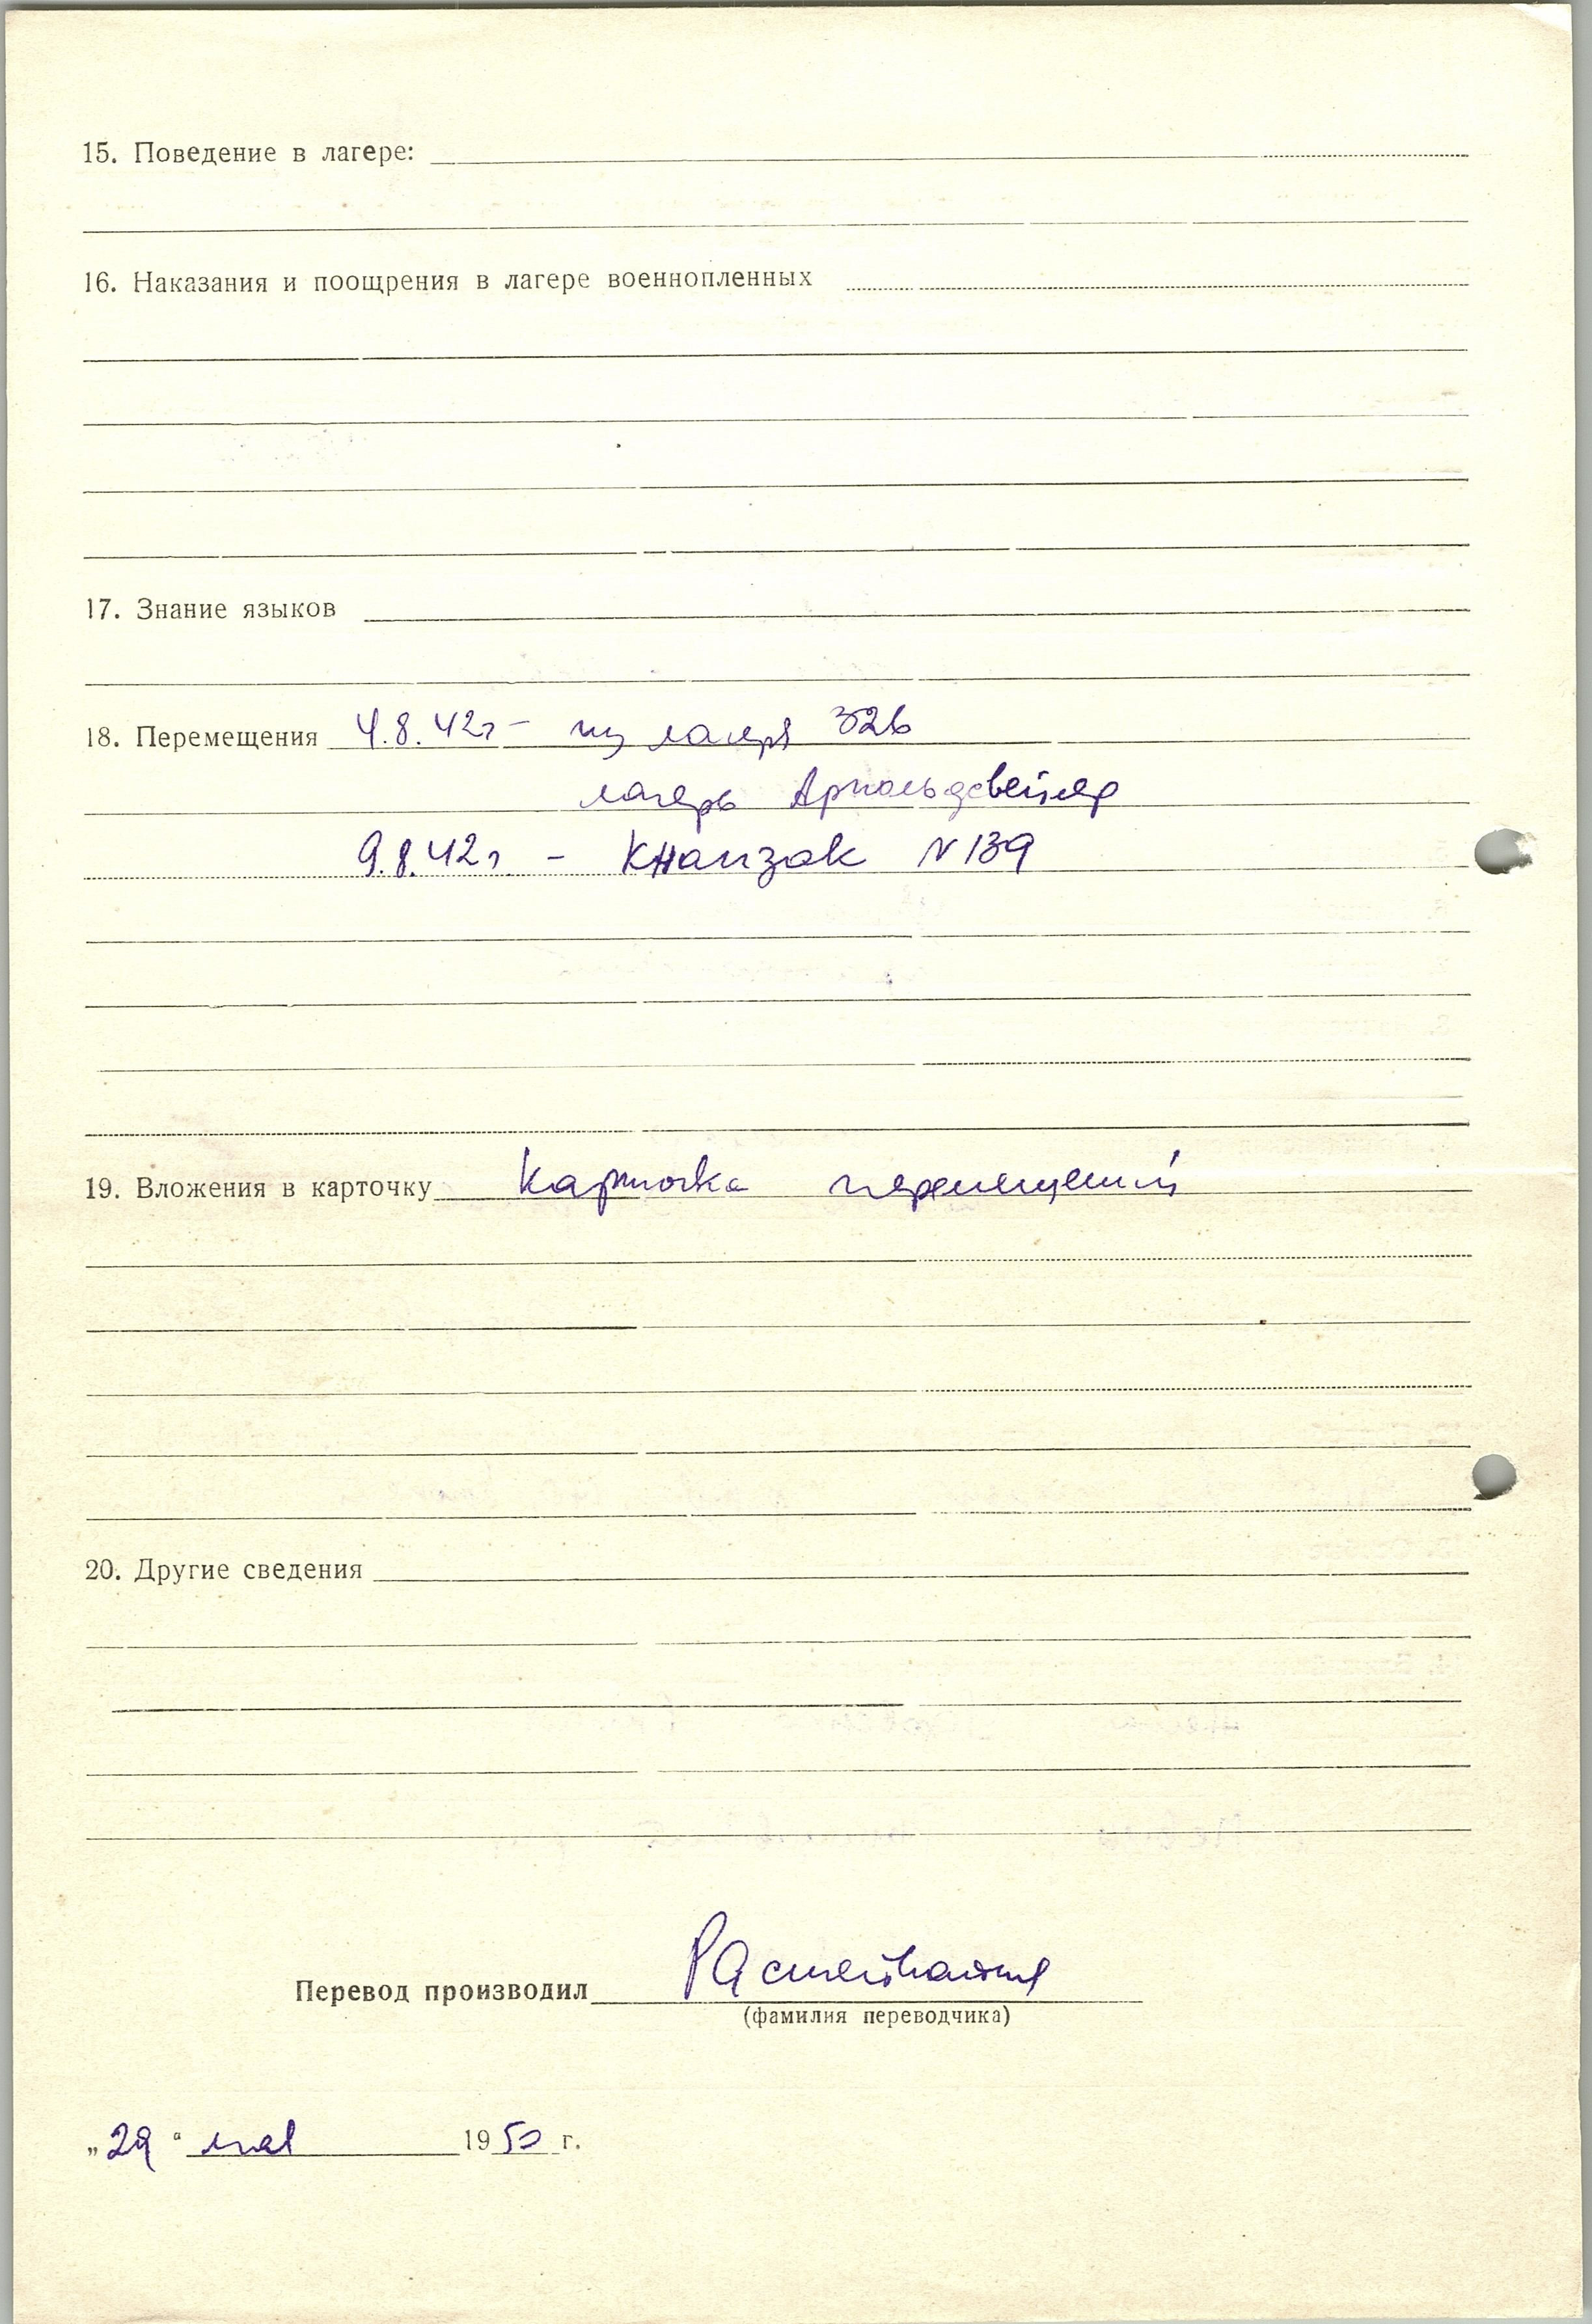 15. Поведение в лагере:
16. Наказания и поощрения в лагере военнопленных
17. Знание языков
18. Перемещения 4.8.42г – из лагеря 326
лагерь Арнольдсвейлер
9.8.42г – Кнапзак N 139
19. Вложения в карточку Карточка перемещений
20. Другие сведения
Перевод производил
(фамилия переводчика)
„29“ мая 1950 г.